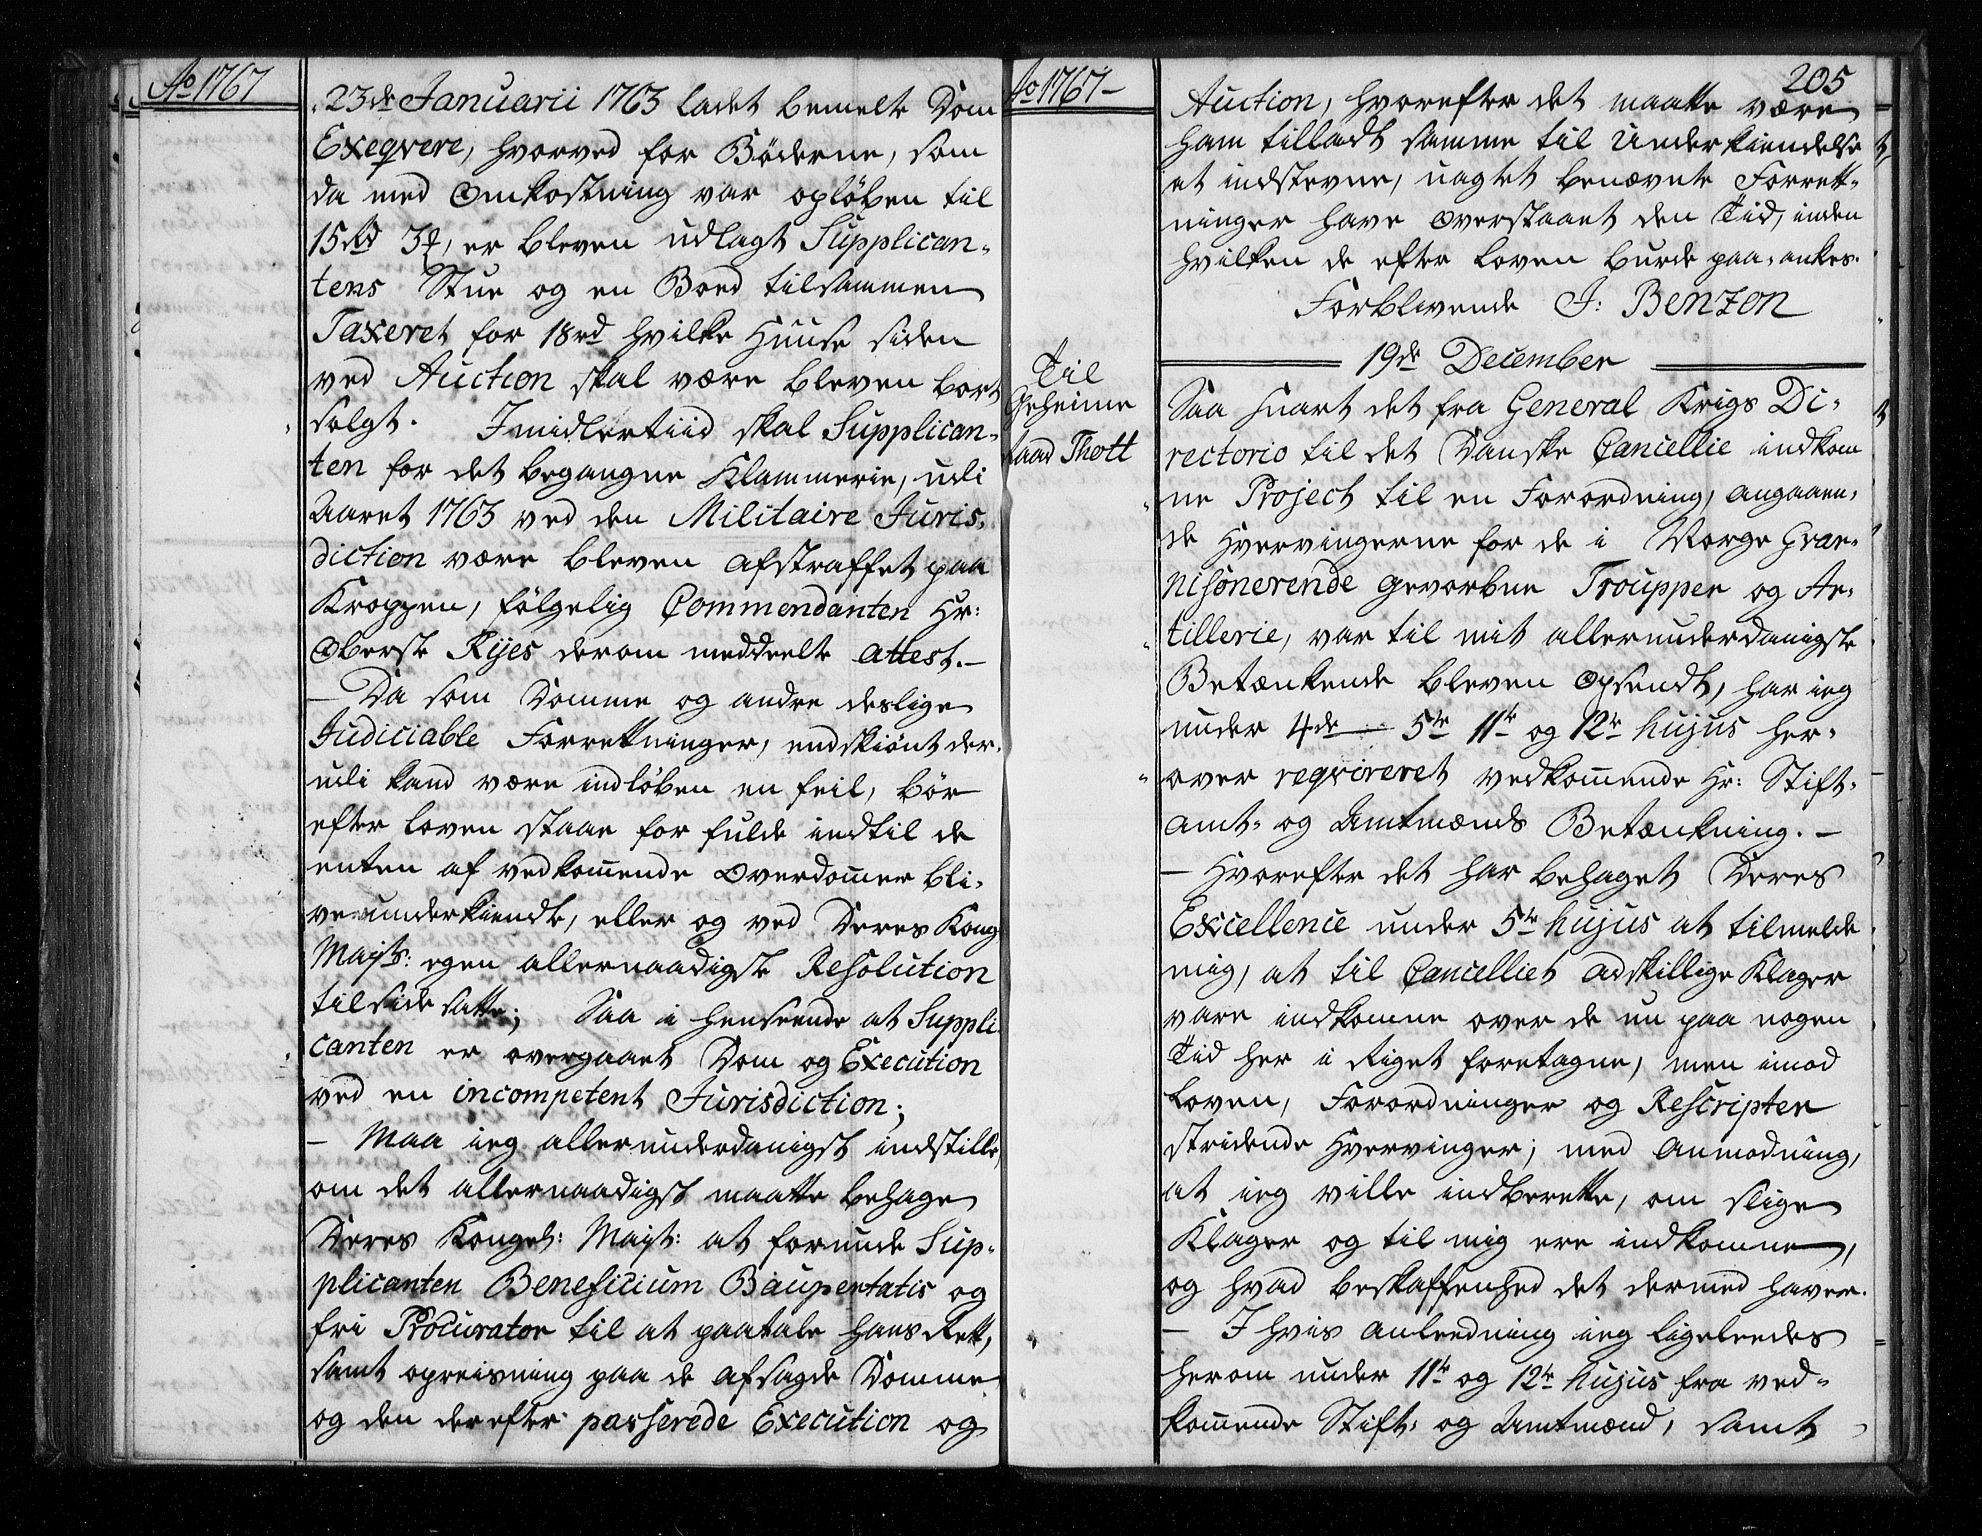 Ao 1767
23de Januarii 1763 ladet bemelte Dom
Exeqvere, hvorved for Bøderne, som
da med Omkostning var opløben til
15rd 3, er bleven udlagt Supplican-
tens Stue og en Boed tilsammen
Taxeret for 18rd hvilke Huuse siden
ved Auction skal være bleven bort
solgt. Imidlertiid skal Supplican-
ten for det begangne Klammerie, udi
Aaret 1763 ved den Militaire Juris-
diction være bleven afstraffet paa
Kroppen, følgelig Commendanten Hr:
Oberste Rÿes derom meddeelte attest.-
- Da som Domme og andre deslige
Judiciable Forrettninger, endskiønt der-
udi kand være indløben en feil, bør
efter Loven staae for fulde indtil de
enten af vedkommende Overdommer bli-
ve underkiendt, eller og ved Deres Kong
Mayts: egen allernaadigste Resolution
tilside satte; Saa i henseende at Suppli
canten er overgaaet Dom og Execution
ved en incompetent Jurisdiction;
- Maa ieg allerunderdanigst indstille,
om det allernaadigst maatte behage
Deres Kongel: Mayt: at forunde Sup-
plicanten Beneficium Paupertatis og
fri Procurator til at paatale hans Rett,
samt opreisning paa de afsagde Domme
og den derefter passerede Execution og
Ao 1767-
205
Auction, hvorefter det maatte være
ham tilladt samme til Underkiendelse
at indstevne, uagtet benævnte Forrett-
ninger have overstaaet den Tid, inden
hvilken de efter Loven burde paa-ankes.
Forblivende J: Benzon
19de December
Til
Geheime
raad Thott
Saa snart det fra General Krigs Di-
rectorio til det Danske Cancellie indkom
ne Project til en Forordning, angaaen-
de Hvervingerne for de i Norge Guar-
nisonerende gevorbne Troupper og Ar-
tillerie, var til mit allerunderdanigste
Betænkende bleven Opsendt, har ieg
under 4de 5te 11te og 12te hujus her-
over reqvireret vedkommende Hr: Stift-
amt- og Amtmænds Betænkning.-
- Hvorefter det har behaget Deres
Excellence under 5te hujus at tilmelde
mig, at til Cancelliet adskillige Klager
vare indkomne over de nu paa nogen
Tid her i Riget foretagne, men imod
Loven, Forordninger og Rescripter
stridende Hvervinger; med Anmodning,
at ieg ville indberette, om slige
Klager og til mig ere indkomne,
og hvad beskaffenhed det dermed haver.
- I hvis anleedning ieg ligeleedes
herom under 11te og 12te hujus fra ved-
kommende Stift- og Amtmænd, samt